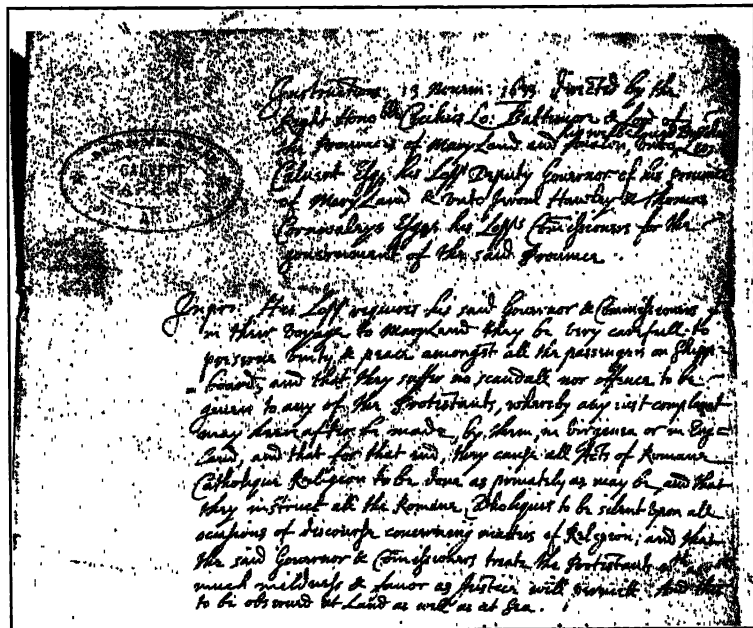 Instructions 13 Novem: 1633 directed by the
Right Hono^ble Cecilius Lo: Baltimore & Lord of
the Provinces of Mary Land and Avalon unto his well beloved Brother Leo:
Calvert Esq^r his Lo^pps Deputy Governor of his province
of Mary Land & unto Jerom Hawley & Thomas
Cornwaleys Esq^rs his Lo^pps Comissioners for the
government of the said Province.
CALVERT
PAPERS
Inpri: His Lo^pp requires his said Governor & Comissioners y^t
in their voyage to Mary Land they be very carefull to
preserve unity & peace amongst all the passengers on Shipp-
board, and that they suffer no scandall nor offence to be
given to any of the Protestants, whereby any just complaint
may heereafter be made, by them, in Virginea or in Eng-
land, and that for that end, they cause all Acts of Romane
Catholique Religion to be done as privately as may be, and that
they instruct all the Romane Catholiques to be silent upon all
occasions of discourse concerning matters of Religion; and that
the said Governor & Comissioners treate the Protestants w^th as
much mildness & favor as Justice will permitt. And this
to be observed at Land as well as at Sea.